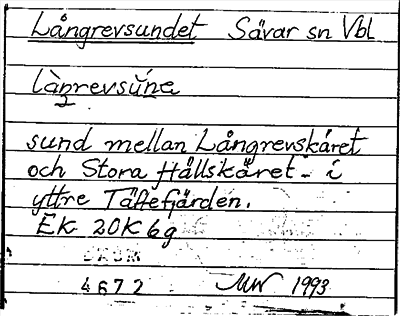 Långrevsundet Sävar sn Vbl
låŋrevsŭ́na
sund mellan Långrevskäret
och Stora Hällskäret - i
yttre Täftefjärden.
EK 20K 6g
DAUM
4672 MW 1993